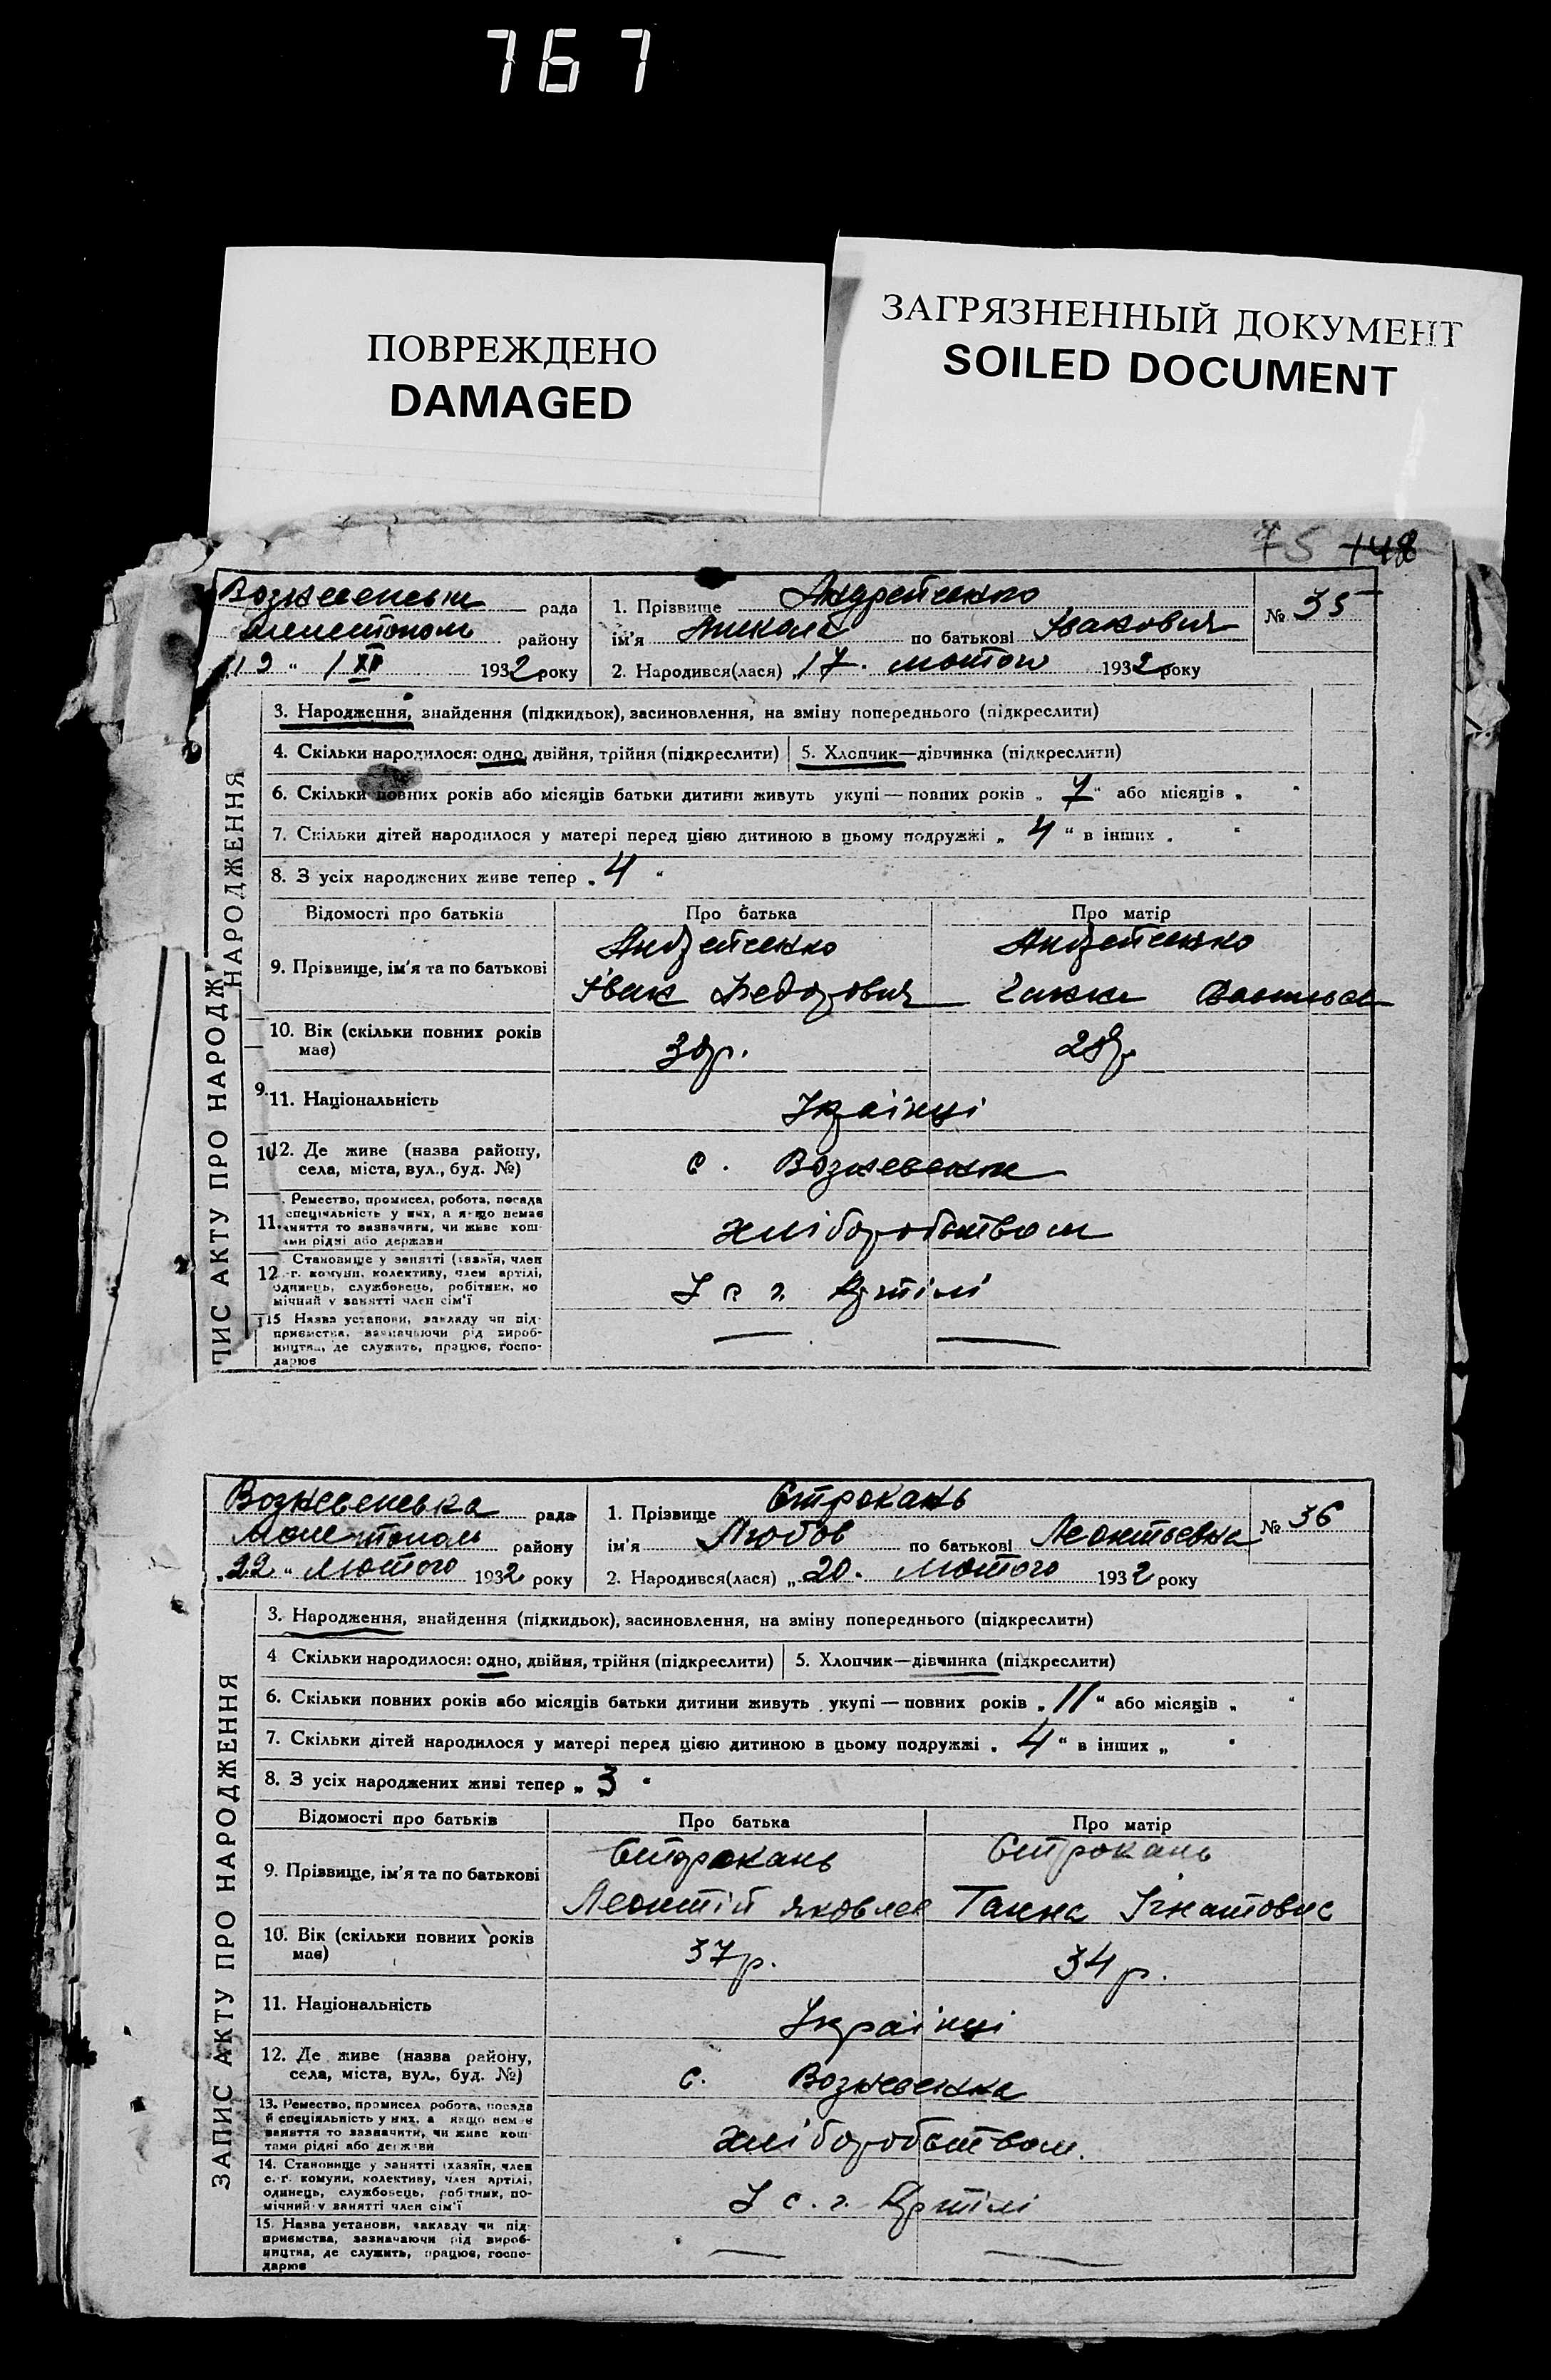 767
ПОВРЕЖДЕНО
DAMAGED
ЗАГРЯЗНЕННЫЙ ДОКУМЕНТ
SOILED DOCUMENT
75 148
рада
району
1932 року
1. Прізвище Андрейченко
ім'я по батькові Іванович
2. Народився(лася) „17. лютого 1932 року
№ 35
ПИС АКТУ ПРО НАРОДЖ
НАРОДЖЕННЯ
3. Народження, знайдення (підкидьок), засиновлення, на зміну попереднього (підкреслити)
4. Скільки народилося: одно, двійня, трійня (підкреслити) 5. Хлопчик—дівчинка (підкреслити)
6. Скільки повних років або місяців батьки дитини живуть укупі — повних років „ 7 “ або місяців „ “
7. Скільки дітей народилося у матері перед цією дитиною в цьому подружжі „ 4 “ в інших „ “
8. З усіх народжених живе тепер „ 4 “
Відомості про батьків Про батька Про матір
9. Прізвище, ім'я та по батькові Андрейченко Андрейченко
Іван Федорович Ганна
10. Вік (скільки повних років має) 30р. 28р.
9. 11. Національність Українці
10 12. Де живе (назва району,
села, міста, вул., буд. №) с.
11. Ремество, промисел, робота, посада
спеціяльність у них, а якщо немає
заняття то зазначити, чи живе кош-
ами рідні або держави
хліборобством
12 Становище у занятті (хазяїн, член
г. комуни, колективу, член артілі,
одинець, службовець, робітник, по
мічний у занятті член сім'ї
У с. г. Артілі
15 Назва установи, закладу чи під-
приємства, зазначаючи рід вироб-
ництва, де служить, працює, госпо-
дарює
Вознесенська рада
району
„22“ Лютого 1932 року
1. Прізвище Строкань
ім'я Любов по батькові Леонтьевна
2. Народився(лася) „20. Лютого 1932 року
№ 36
ЗАПИС АКТУ ПРО НАРОДЖЕННЯ
3. Народження, знайдення (підкидьок), засиновлення, на зміну попереднього (підкреслити)
4 Скільки народилося: одно, двійня, трійня (підкреслити) 5. Хлопчик—дівчинка (підкреслити)
6. Скільки повних років або місяців батьки дитини живуть укупі — повних років „ 11 “ або місяців „ “
7. Скільки дітей народилося у матері перед цією дитиною в цьому подружжі „ 4 “ в інших „ “
8. З усіх народжених живі тепер „ 3 “
Відомості про батьків Про батька Про матір
9. Прізвище, ім'я та по батькові Строкань Строкань
Леонтій Яковлев Ганна Ігнатовна
10. Вік (скільки повних років
має) 37р. 34р.
11. Національність Українці
12. Де живе (назва району,
села, міста, вул., буд. №) с. Вознесенка
13. Ремество, промисел робота, посада
й спеціяльність у них, а якщо немає
заняття то зазначити, чи живе кош-
тами рідні або держави
хліборобством.
14. Становище у занятті (хазяїн, член
с.-г. комуни, колективу, член артілі,
одинець, службовець, робітник, по-
мічний у занятті член сім'ї
У с. г. Артілі
15. Назва установи, закладу чи під-
приємства, зазначаючи рід вироб-
ництва, де служить, працює, госпо-
дарює